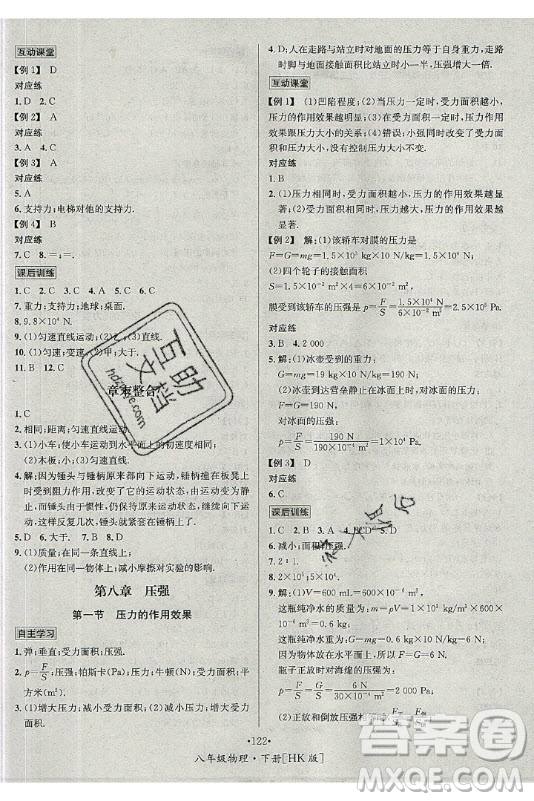 互动课堂
【例 1】 D
对应练
1. D 2. C
【例 2】 A
对应练
3. A 4. C
【例 3】 A
对应练
5. A
6. 支持力;电梯对他的支持力.
【例 4】 B
对应练
7. C 8. =;=.
课后训练
1. C 2. C 3. B 4. A 5. B 6. C
7. 重力;支持力;地球;桌面.
8. 9.8×10⁴.
9. (1)匀速直线运动;(2)乙;(3)直线.
10. (1)匀速;变速;(2)甲;大于.
11. B 12. B
章末整合
1. C
2. 相同;距离;匀速直线.
3. (1)小车;使小车运动到水平面上的初速度相同;
(2)木板;小;(3)匀速直线.
4. 解:因为锤头与锤柄原来都向下运动,锤柄撞在板凳上时受到阻力的作用,改变了它的运动状态,锤头由于惯性,仍保持原来运动状态,继续向下运动,这样锤头就紧套在锤柄上了.
5. (1)质量;在同一条直线上;
(2)方向相反;作用在同一物体上;
(3)减小摩擦对实验的影响.
第八章 压强
第一节 压力的作用效果
自主学习
1. 弹;垂直;受力面积;垂直.
2. p=F/S;压强;帕斯卡(Pa);牛顿(N);受力面积;平方米(m²).
3. 增大压力;减小受力面积;减小压力;增大受力面积.
4. D;人在走路与站立时对地面的压力都等于自身重力,走路时脚与地面接触面积比站立时小一半,压强增大.
互动课堂
【例 1】 (1)凹陷程度;(2)压力一定时,受力面积越小,压力的作用效果越明显;(3)没有控制受力面积大小相同来探究与压力大小的关系;(4)错误;小强同时改变了压力的大小,没有控制压力相同.
对应练
1. D
2. (1)压力一定时,受力面积越小,压力的作用效果越明显;(2)压力和受力面积的比值;压力与受力面积的比值越大,压力的作用效果越明显.
【例 2】 解:(1)该轿车对膜的压力是
F=G=mg=1.5×10³ kg×10 N/kg=1.5×10⁴ N;
(2)四个轮子的接触面积
S=1.5×10⁻² m²×4=6×10⁻² m²,
膜受到该轿车的压强 p=F/S=1.5×10⁴ N/6×10⁻² m²=2.5×10⁵ Pa.
对应练
3. B 4. 2000
5. 解:(1)冰壶受到的重力
G=mg=19 kg×10 N/kg=190 N;
(2)冰壶到达营垒静止时,对水平冰面的压力
F=G=190 N,
对冰面的压强:
【例 3】 D
对应练
6. C
课后训练
1. C 2. B 3. A 4. BCD 5. D
6. 减小;面积;压强.
7. 2∶1.
8. 2×10⁵;2×10⁴.
9. 解:(1)V=600 mL=600 cm³,
这瓶纯净水的质量为:m=ρV=1.0 g/cm³×600 cm³=600 g=0.6 kg;
这瓶纯净水的重力为:G=mg=0.6 kg×10 N/kg=6 N;
因为放在水平面上,所以压力等于重力,即 F=G=6 N,
瓶子正放时对海绵的压强为:
p=F/S=6 N/30×10⁻⁴ m²=2×10³ Pa;
·122·
八年级物理·下册[HK 版]
互助文档
hdzuoye.com
答案圈
MXQE.COM